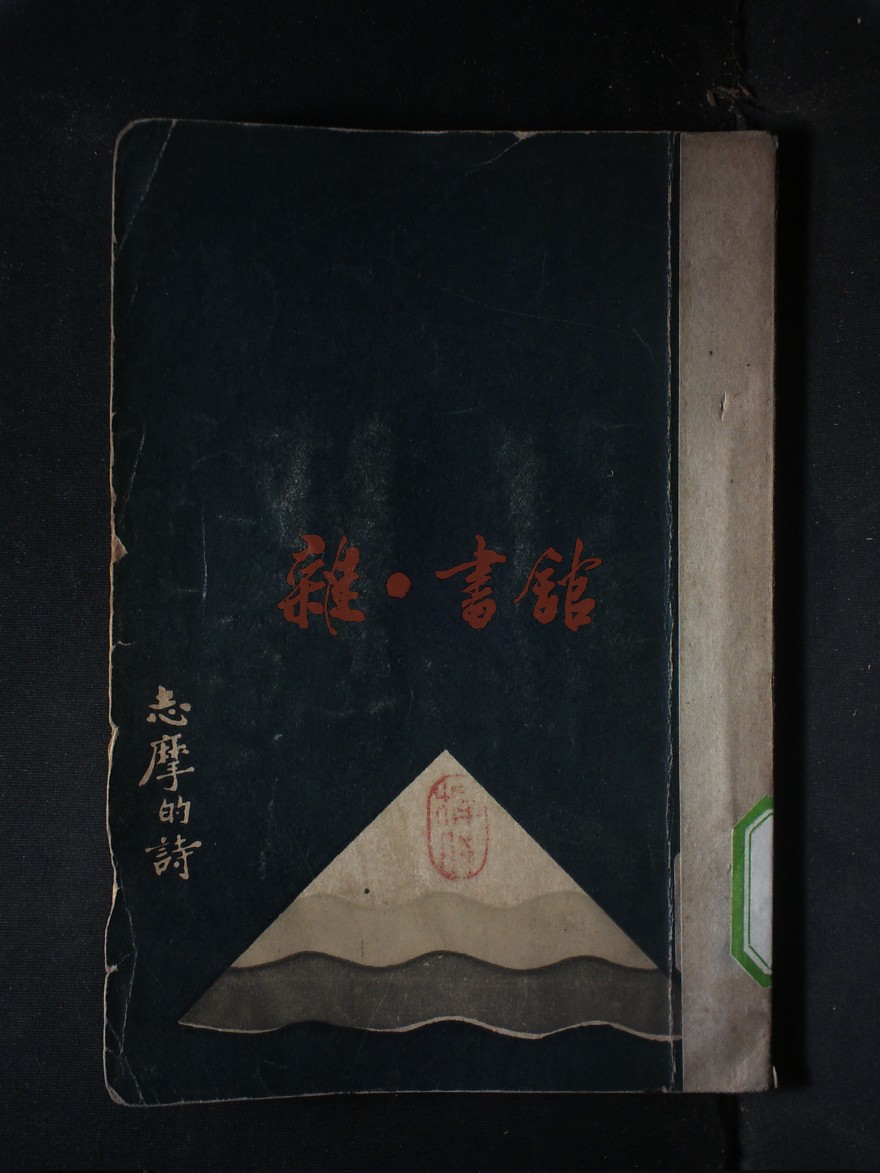 雜·書館
志摩的詩